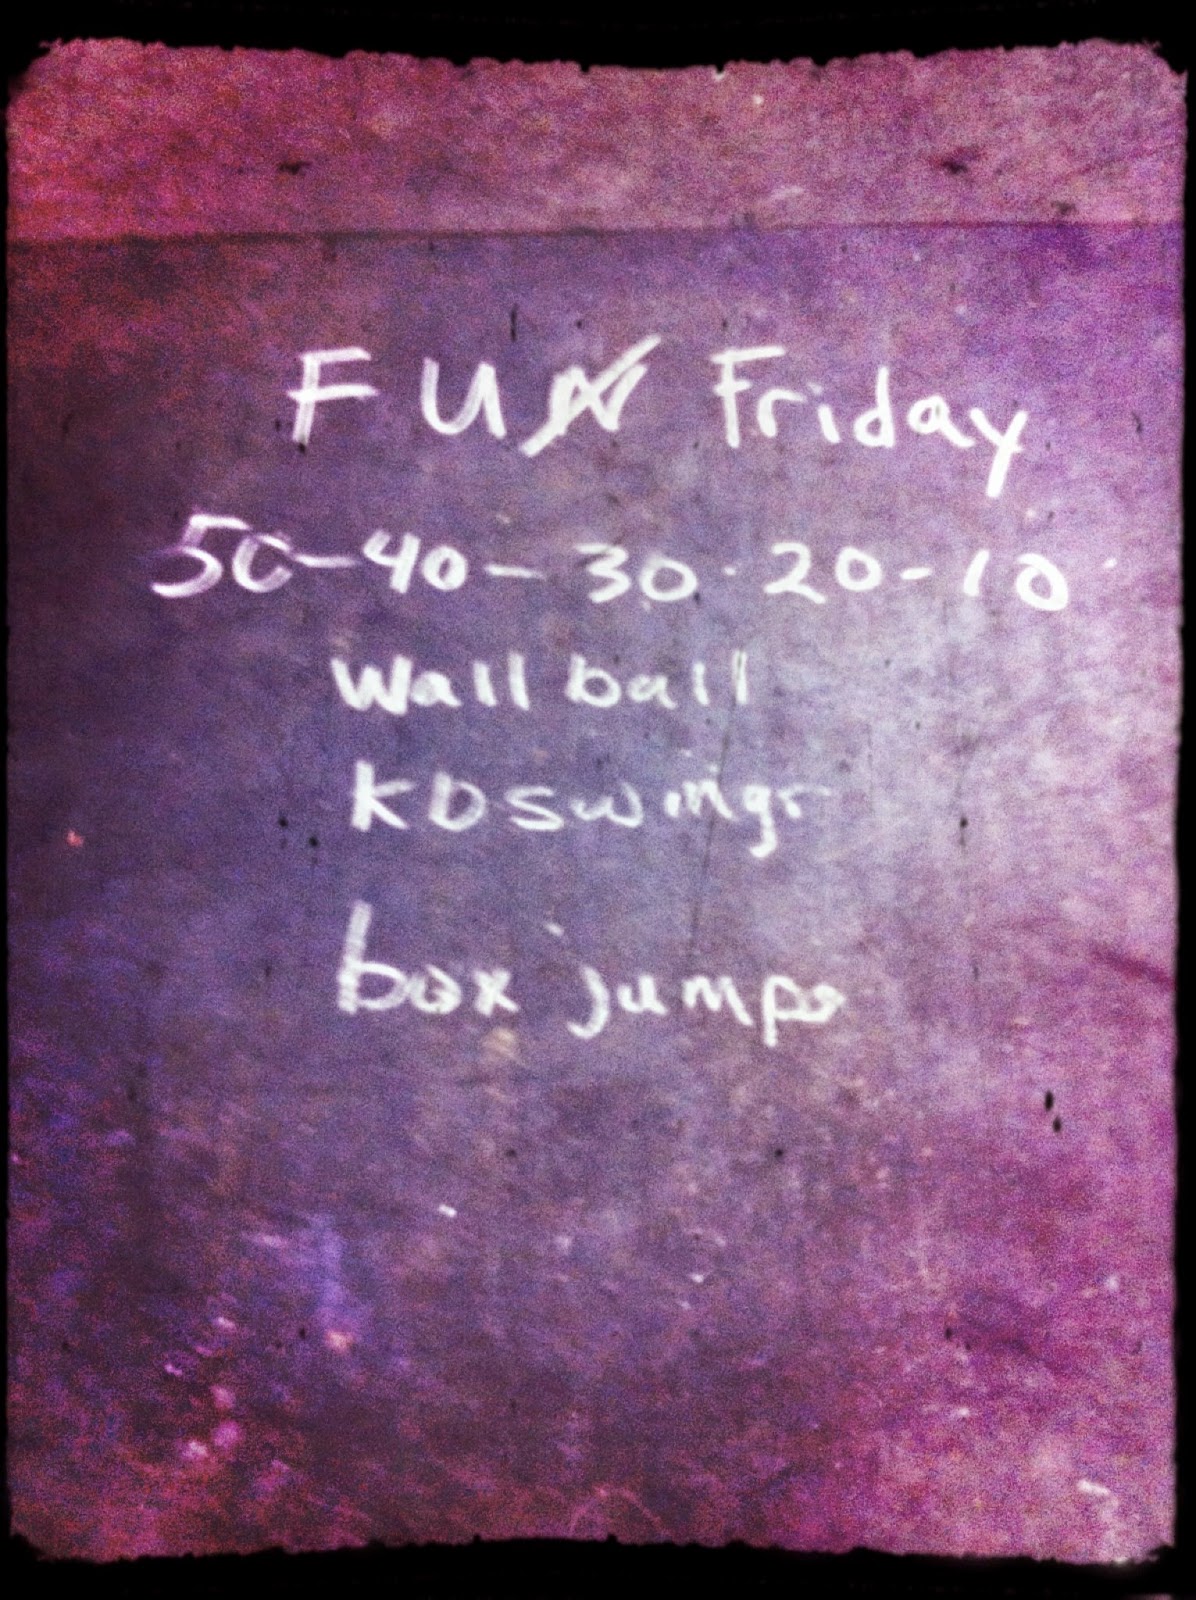 FUN Friday
50-40-30-20-10
Wall ball
KB swings
box jumps